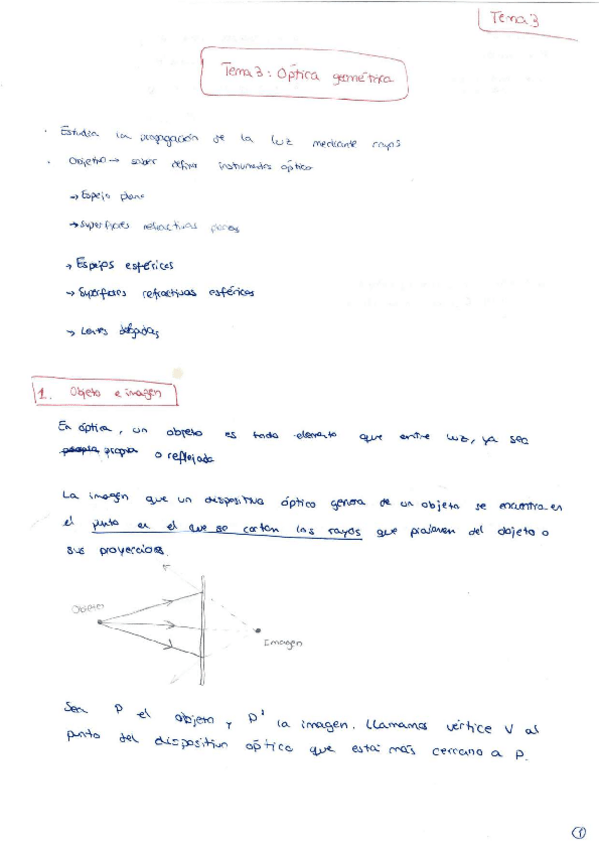 Tema 3
Tema 3: Óptica geométrica
· Estudia la propagación de la luz mediante rayos
· Objetivo → saber definir instrumentos óptico
→ Espejo plano
→ Superficies refractivas planas
→ Espejos esféricos
→ Superficies refractivas esféricas
→ Lentes delgadas
1. Objeto e imagen
En óptica, un objeto es todo elemento que emite luz, ya sea
propia o reflejada
La imagen que un dispositivo óptico genera de un objeto se encuentra en
el punto en el que se cortan los rayos que provienen del objeto o
sus proyecciones.
Objeto
Imagen
Sea P el objeto y P' la imagen. Llamamos vértice V al
punto del dispositivo óptico que está más cercano a P.
1